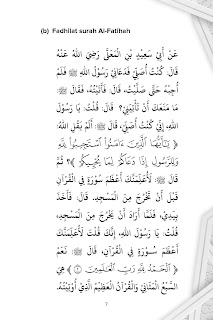 (b) Fadhilat surah Al-Fatihah
عَنْ أَبِي سَعِيْدِ بْنِ الْمُعَلَّى رَضِيَ اللهُ عَنْهُ
قَالَ: كُنْتُ أُصَلِّيْ فَدَعَانِيْ رَسُوْلُ اللهِ ﷺ فَلَمْ
أُجِبْهُ حَتَّى صَلَّيْتُ، قَالَ: فَأَتَيْتُهُ، فَقَالَ ﷺ:
مَا مَنَعَكَ أَنْ تَأْتِيَنِيْ؟ قَالَ: قُلْتُ: يَا رَسُوْلَ
اللهِ، إِنِّيْ كُنْتُ أُصَلِّيْ، قَالَ ﷺ: أَلَمْ يَقُلِ اللهُ:
﴿ يَٰٓأَيُّهَا ٱلَّذِينَ ءَامَنُوا۟ ٱسْتَجِيبُوا۟ لِلَّهِ
وَلِلرَّسُولِ إِذَا دَعَاكُمْ لِمَا يُحْيِيكُمْ ﴾؟ ثُمَّ
قَالَ ﷺ: لَأُعَلِّمَنَّكَ أَعْظَمَ سُوْرَةٍ فِي الْقُرْآنِ
قَبْلَ أَنْ تَخْرُجَ مِنَ الْمَسْجِدِ. قَالَ: فَأَخَذَ
بِيَدِيْ، فَلَمَّا أَرَادَ أَنْ يَخْرُجَ مِنَ الْمَسْجِدِ،
قُلْتُ: يَا رَسُوْلَ اللهِ، إِنَّكَ قُلْتَ لَأُعَلِّمَنَّكَ
أَعْظَمَ سُوْرَةٍ فِي الْقُرْآنِ، قَالَ ﷺ: نَعَمْ
﴿ ٱلْحَمْدُ لِلَّهِ رَبِّ ٱلْعَٰلَمِينَ ﴾ هِيَ
السَّبْعُ الْمَثَانِيْ وَالْقُرْآنُ الْعَظِيْمُ الَّذِيْ أُوْتِيْتُهُ.
7